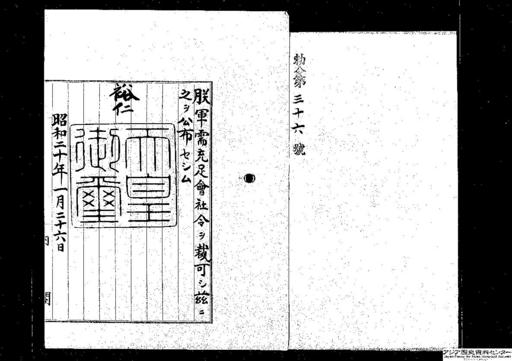 勅令第三十六號
朕軍需充足會社令ヲ裁可シ茲ニ
之ヲ公布セシム
裕仁
天皇御璽
昭和二十年一月二十六日
内閣
アジア歴史資料センター